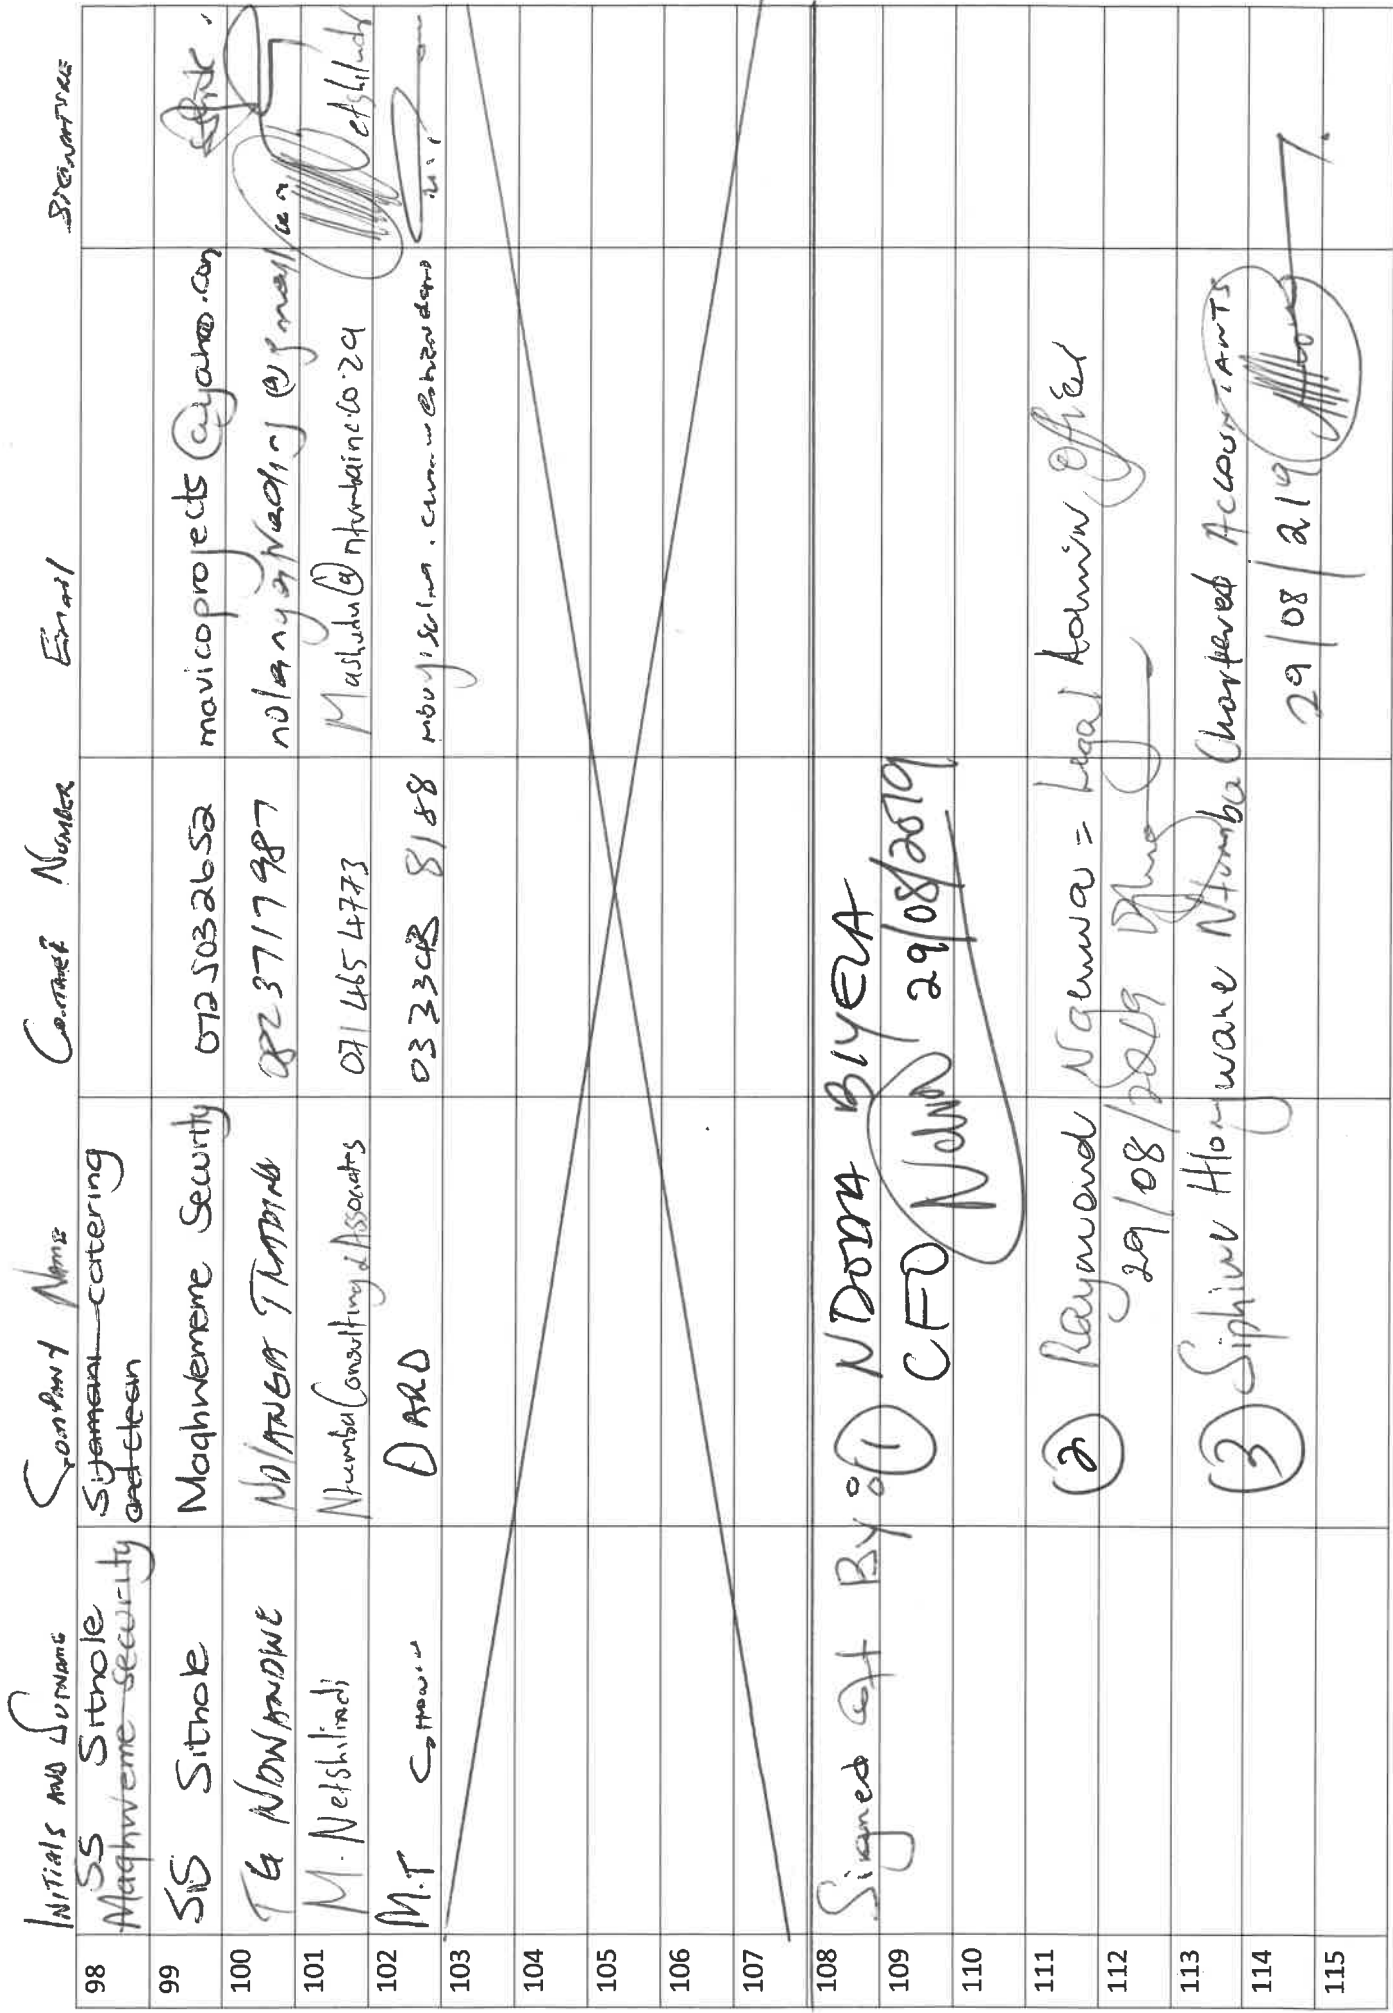 INITIALS AND SURNAME Company Name Contact Number Email SIGNATURE
98 SS Sithole Sijamani catering
Maqhweme security and clean
99 SS Sithole Maqhweme Security 0725032652 mavicoprojects@yahoo.com
100 TG NDWANDWE NDLANGA TRADING 082 3717987
101 M. Netshilindi Ntumba Consulting & Associates 071 465 4773 Mashudu@ntumbainc.co.za
102 M.T DARD 8188
103
104
105
106
107
108 Signed Off By: ① NDODA BIYELA
109 CFO 29/08/2019
110
111 ② Raymond Ngcamu = Legal Admin Officer
112 29/08/2019
113 ③ Siphiwe Hlongwane Ntumba Chartered ACCOUNTANTS
114 29/08/219
115